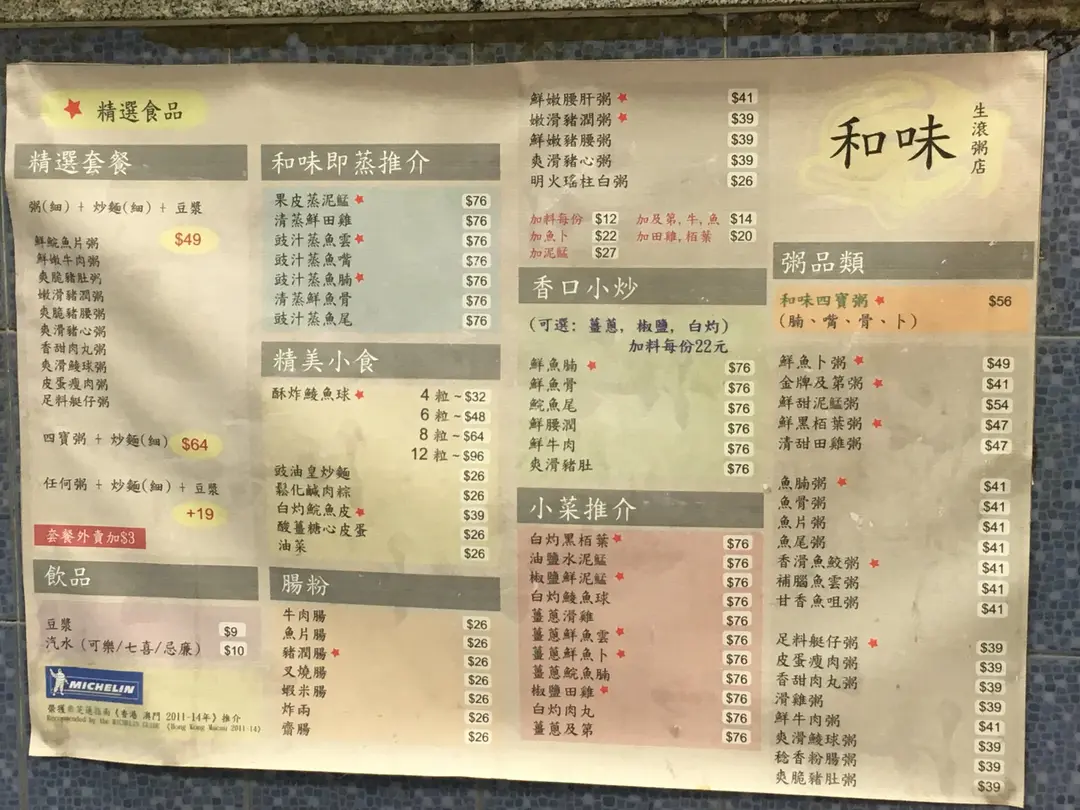 精選食品
精選套餐
粥(細) + 炒麵(細) + 豆漿
$49
鮮鯇魚片粥
鮮嫩牛肉粥
爽脆豬肚粥
嫩滑豬潤粥
爽脆豬腰粥
爽滑豬心粥
香甜肉丸粥
爽滑鯪球粥
皮蛋瘦肉粥
足料艇仔粥
四寶粥 + 炒麵(細) $64
任何粥 + 炒麵(細) + 豆漿
+19
套餐外賣加$3
飲品
豆漿 $9
汽水 (可樂/七喜/忌廉) $10
MICHELIN
榮獲米芝蓮指南《香港 澳門 2011-14年》推介
Recommended by the MICHELIN GUIDE 《Hong Kong Macau 2011-14》
和味即蒸推介
果皮蒸泥鯭 $76
清蒸鮮田雞 $76
豉汁蒸魚雲 $76
豉汁蒸魚嘴 $76
豉汁蒸魚腩 $76
清蒸鮮魚骨 $76
豉汁蒸魚尾 $76
精美小食
酥炸鯪魚球 4 粒 ~ $32
6 粒 ~ $48
8 粒 ~ $64
12 粒 ~ $96
豉油皇炒麵 $26
鬆化鹹肉粽 $26
白灼鯇魚皮 $39
酸薑糖心皮蛋 $26
油菜 $26
腸粉
牛肉腸 $26
魚片腸 $26
豬潤腸 $26
叉燒腸 $26
蝦米腸 $26
炸兩 $26
齋腸 $26
鮮嫩腰肝粥 $41
嫩滑豬潤粥 $39
鮮嫩豬腰粥 $39
爽滑豬心粥 $39
明火瑤柱白粥 $26
加料每份 $12 加及第,牛,魚 $14
加魚卜 $22 加田雞,栢葉 $20
加泥鯭 $27
香口小炒
(可選: 薑蔥, 椒鹽, 白灼)
加料每份22元
鮮魚腩 $76
鮮魚骨 $76
鯇魚尾 $76
鮮腰潤 $76
鮮牛肉 $76
爽滑豬肚 $76
小菜推介
白灼黑栢葉 $76
油鹽水泥鯭 $76
椒鹽鮮泥鯭 $76
白灼鯪魚球 $76
薑蔥滑雞 $76
薑蔥鮮魚雲 $76
薑蔥鮮魚卜 $76
薑蔥鯇魚腩 $76
椒鹽田雞 $76
白灼肉丸 $76
薑蔥及第 $76
和味
生滾粥店
粥品類
和味四寶粥 $56
(腩、嘴、骨、卜)
鮮魚卜粥 $49
金牌及第粥 $41
鮮甜泥鯭粥 $54
鮮黑栢葉粥 $47
清甜田雞粥 $47
魚腩粥 $41
魚骨粥 $41
魚片粥 $41
魚尾粥 $41
香滑魚鮫粥 $41
補腦魚雲粥 $41
甘香魚咀粥 $41
足料艇仔粥 $39
皮蛋瘦肉粥 $39
香甜肉丸粥 $39
滑雞粥 $39
鮮牛肉粥 $41
爽滑鯪球粥 $39
稔香粉腸粥 $39
爽脆豬肚粥 $39